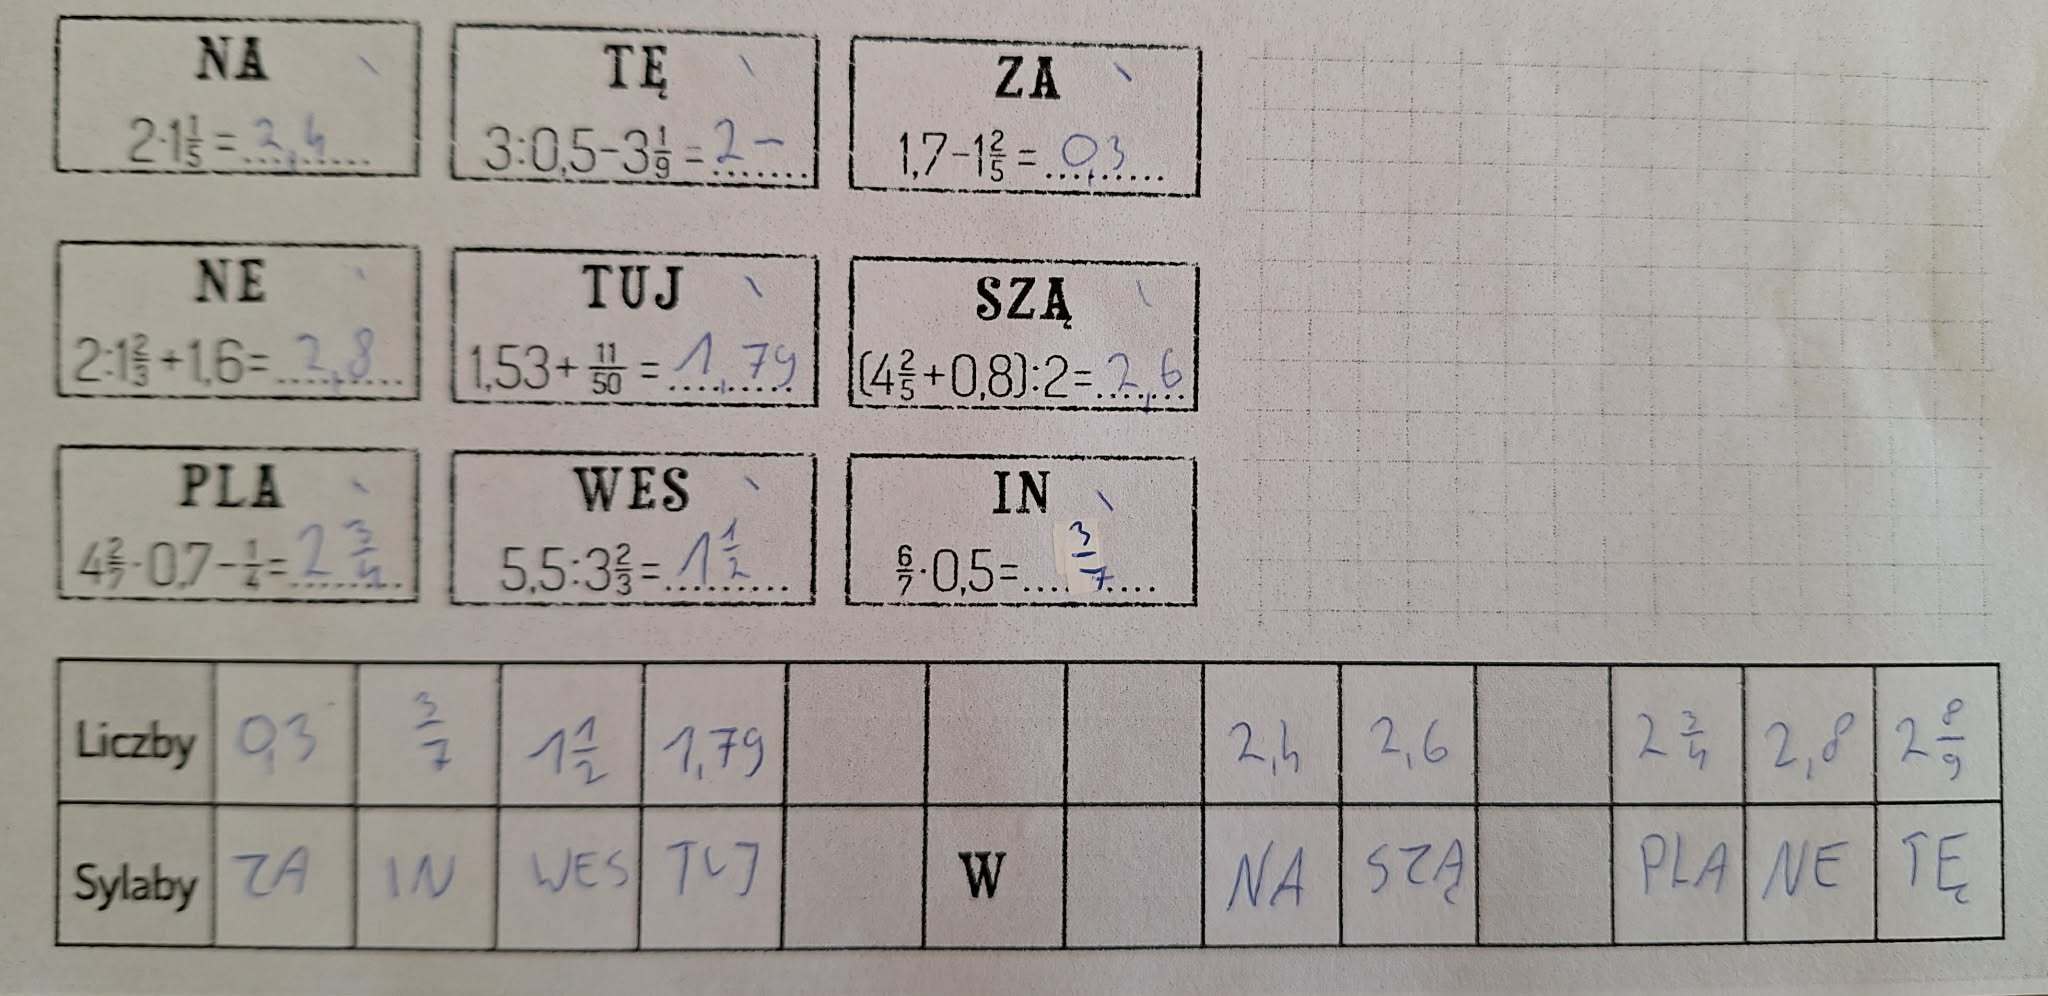 NA TĘ ZA
2·1 1/5 = 2,4 3:0,5-3 1/9 = 2 - 1,7-1 2/5 = 0,3
NE TUJ SZĄ
2:1 2/3 +1,6= 2,8 1,53+ 11/50 = 1,79 (4 2/5 +0,8):2= 2,6
PLA WES IN
4 2/7 ·0,7- 1/4 = 2 3/4 5,5:3 2/3 = 1 1/2 6/7 ·0,5= 3/7
Liczby 0,3 3/7 1 1/2 1,79 2,4 2,6 2 3/4 2,8 2 8/9
Sylaby ZA IN WES TUJ W NA SZĄ PLA NE TĘ